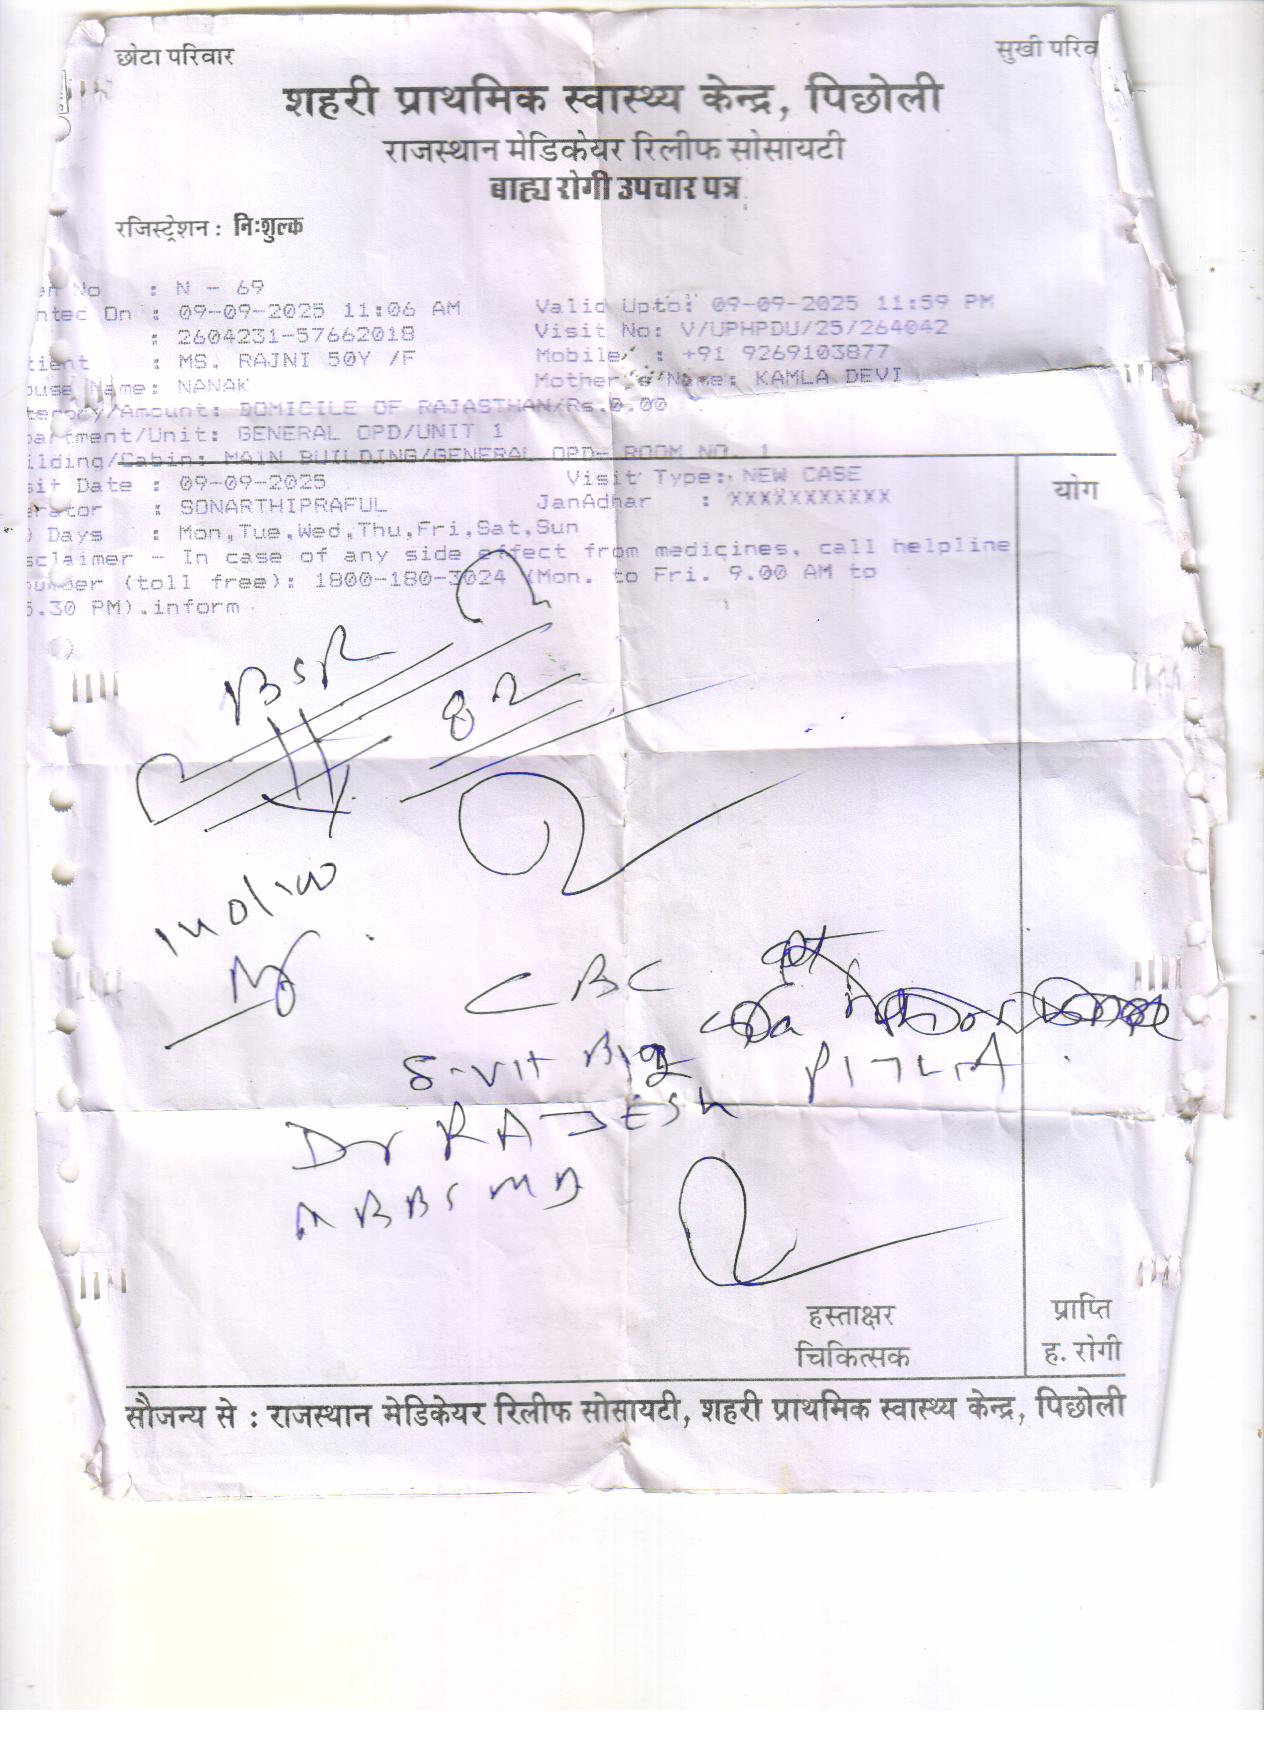 छोटा परिवार सुखी परिव
शहरी प्राथमिक स्वास्थ्य केन्द्र, पिछोली
राजस्थान मेडिकेयर रिलीफ सोसायटी
बाह्य रोगी उपचार पत्र
रजिस्ट्रेशन : निःशुल्क
en No : N - 69
nted On : 09-09-2025 11:06 AM Valid Upto: 09-09-2025 11:59 PM
: 2604231-57662018 Visit No: V/UPHPDU/25/264042
tient : MS. RAJNI 50Y /F Mobile : +91 9269103877
ouse Name: NANAK Mother's Name: KAMLA DEVI
tegory/Amount: DOMICILE OF RAJASTHAN/Rs.0.00
partment/Unit: GENERAL OPD/UNIT 1
ilding/Cabin: MAIN BUILDING/GENERAL OPD- ROOM NO. 1
sit Date : 09-09-2025 Visit Type: NEW CASE योग
erator : SONARTHIPRAFUL JanAdhar : XXXXXXXXXXX
Days : Mon,Tue,Wed,Thu,Fri,Sat,Sun
sclaimer - In case of any side effect from medicines, call helpline
number (toll free): 1800-180-3024 (Mon. to Fri. 9.00 AM to
6.30 PM).inform
BSR
82
CBC
S-Vit B12
Dr RAJESH
MBBS MD
हस्ताक्षर प्राप्ति
चिकित्सक ह. रोगी
सौजन्य से : राजस्थान मेडिकेयर रिलीफ सोसायटी, शहरी प्राथमिक स्वास्थ्य केन्द्र, पिछोली